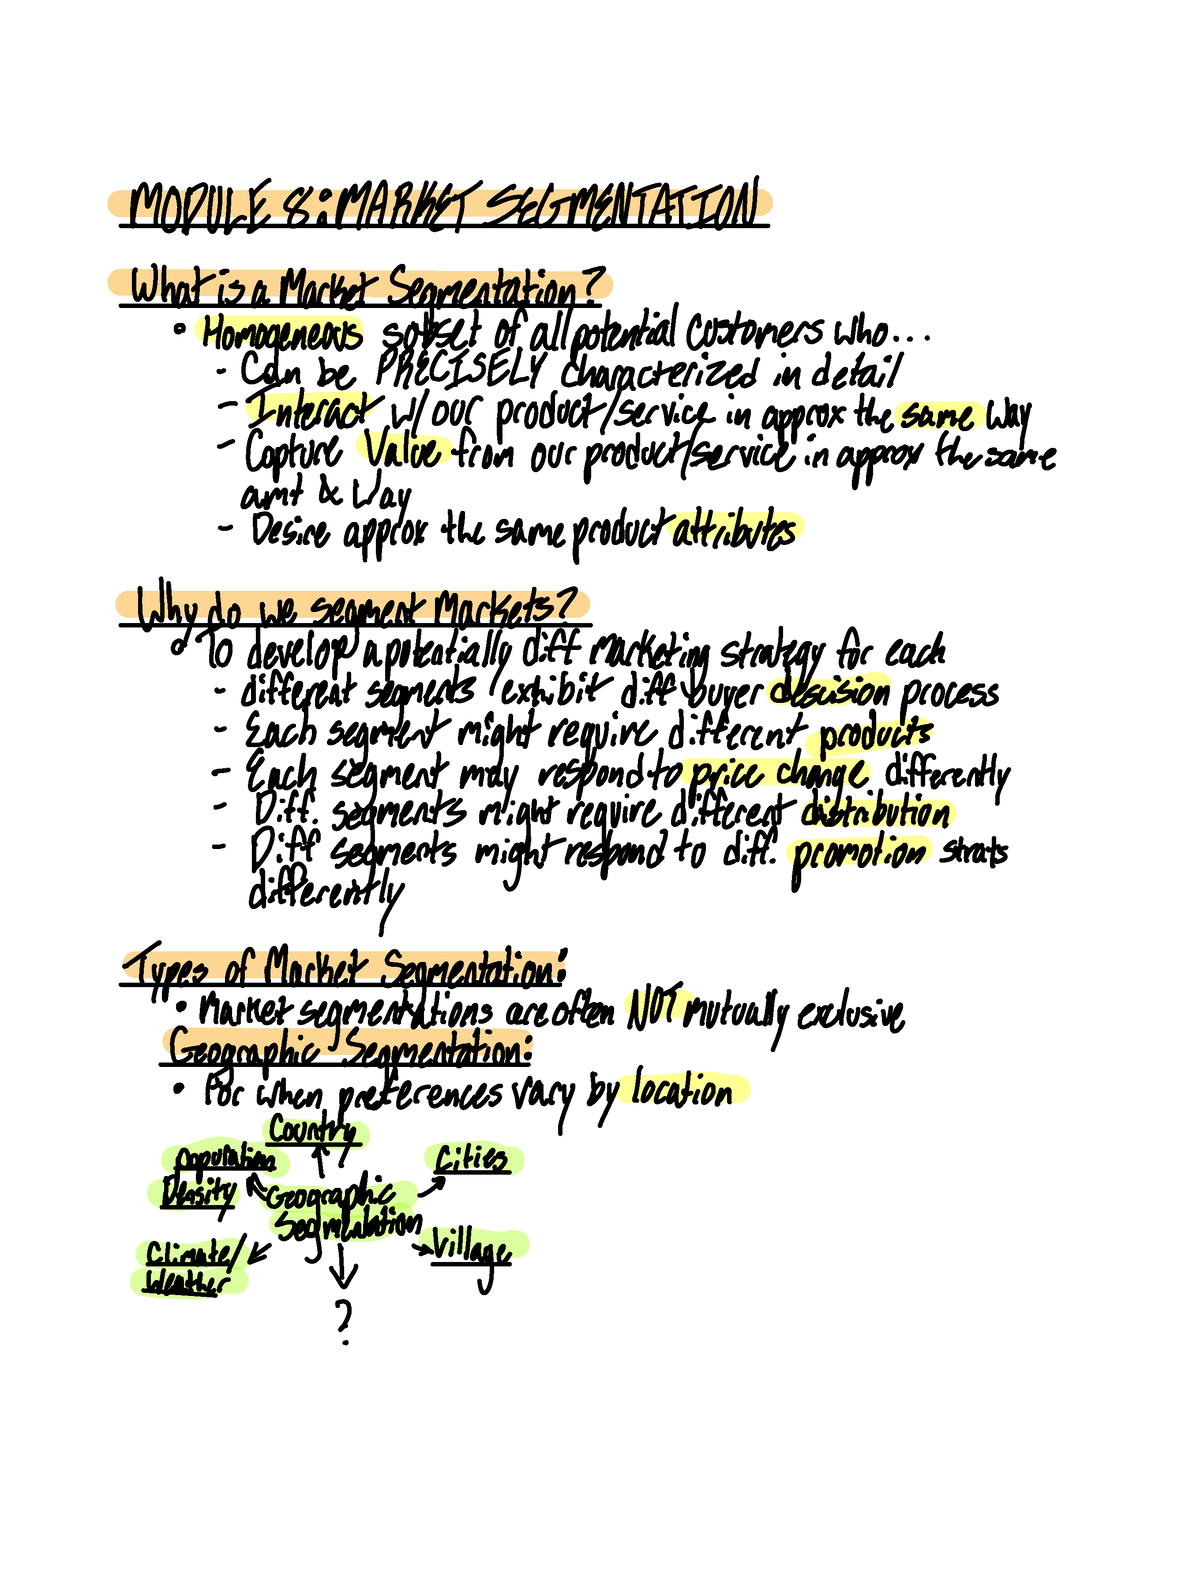 MODULE 8: MARKET SEGMENTATION
What is a Market Segmentation?
• Homogeneous subset of all potential customers who...
- Can be PRECISELY characterized in detail
- Interact w/ our product/service in approx the same way
- Capture Value from our product/service in approx the same
amt & Way
- Desire approx the same product attributes
Why do we segment Markets?
• To develop a potentially diff marketing strategy for each
- different segments exhibit diff buyer descision process
- Each segment might require different products
- Each segment may respond to price change differently
- Diff. segments might require different distribution
- Diff segments might respond to diff. promotion strats
differently
Types of Market Segmentation:
• Market segmentations are often NOT mutually exclusive
Geographic Segmentation:
• For when preferences vary by location
Country
Population
Density
Cities
Geographic
Segmentation
Village
Climate/
Weather
?